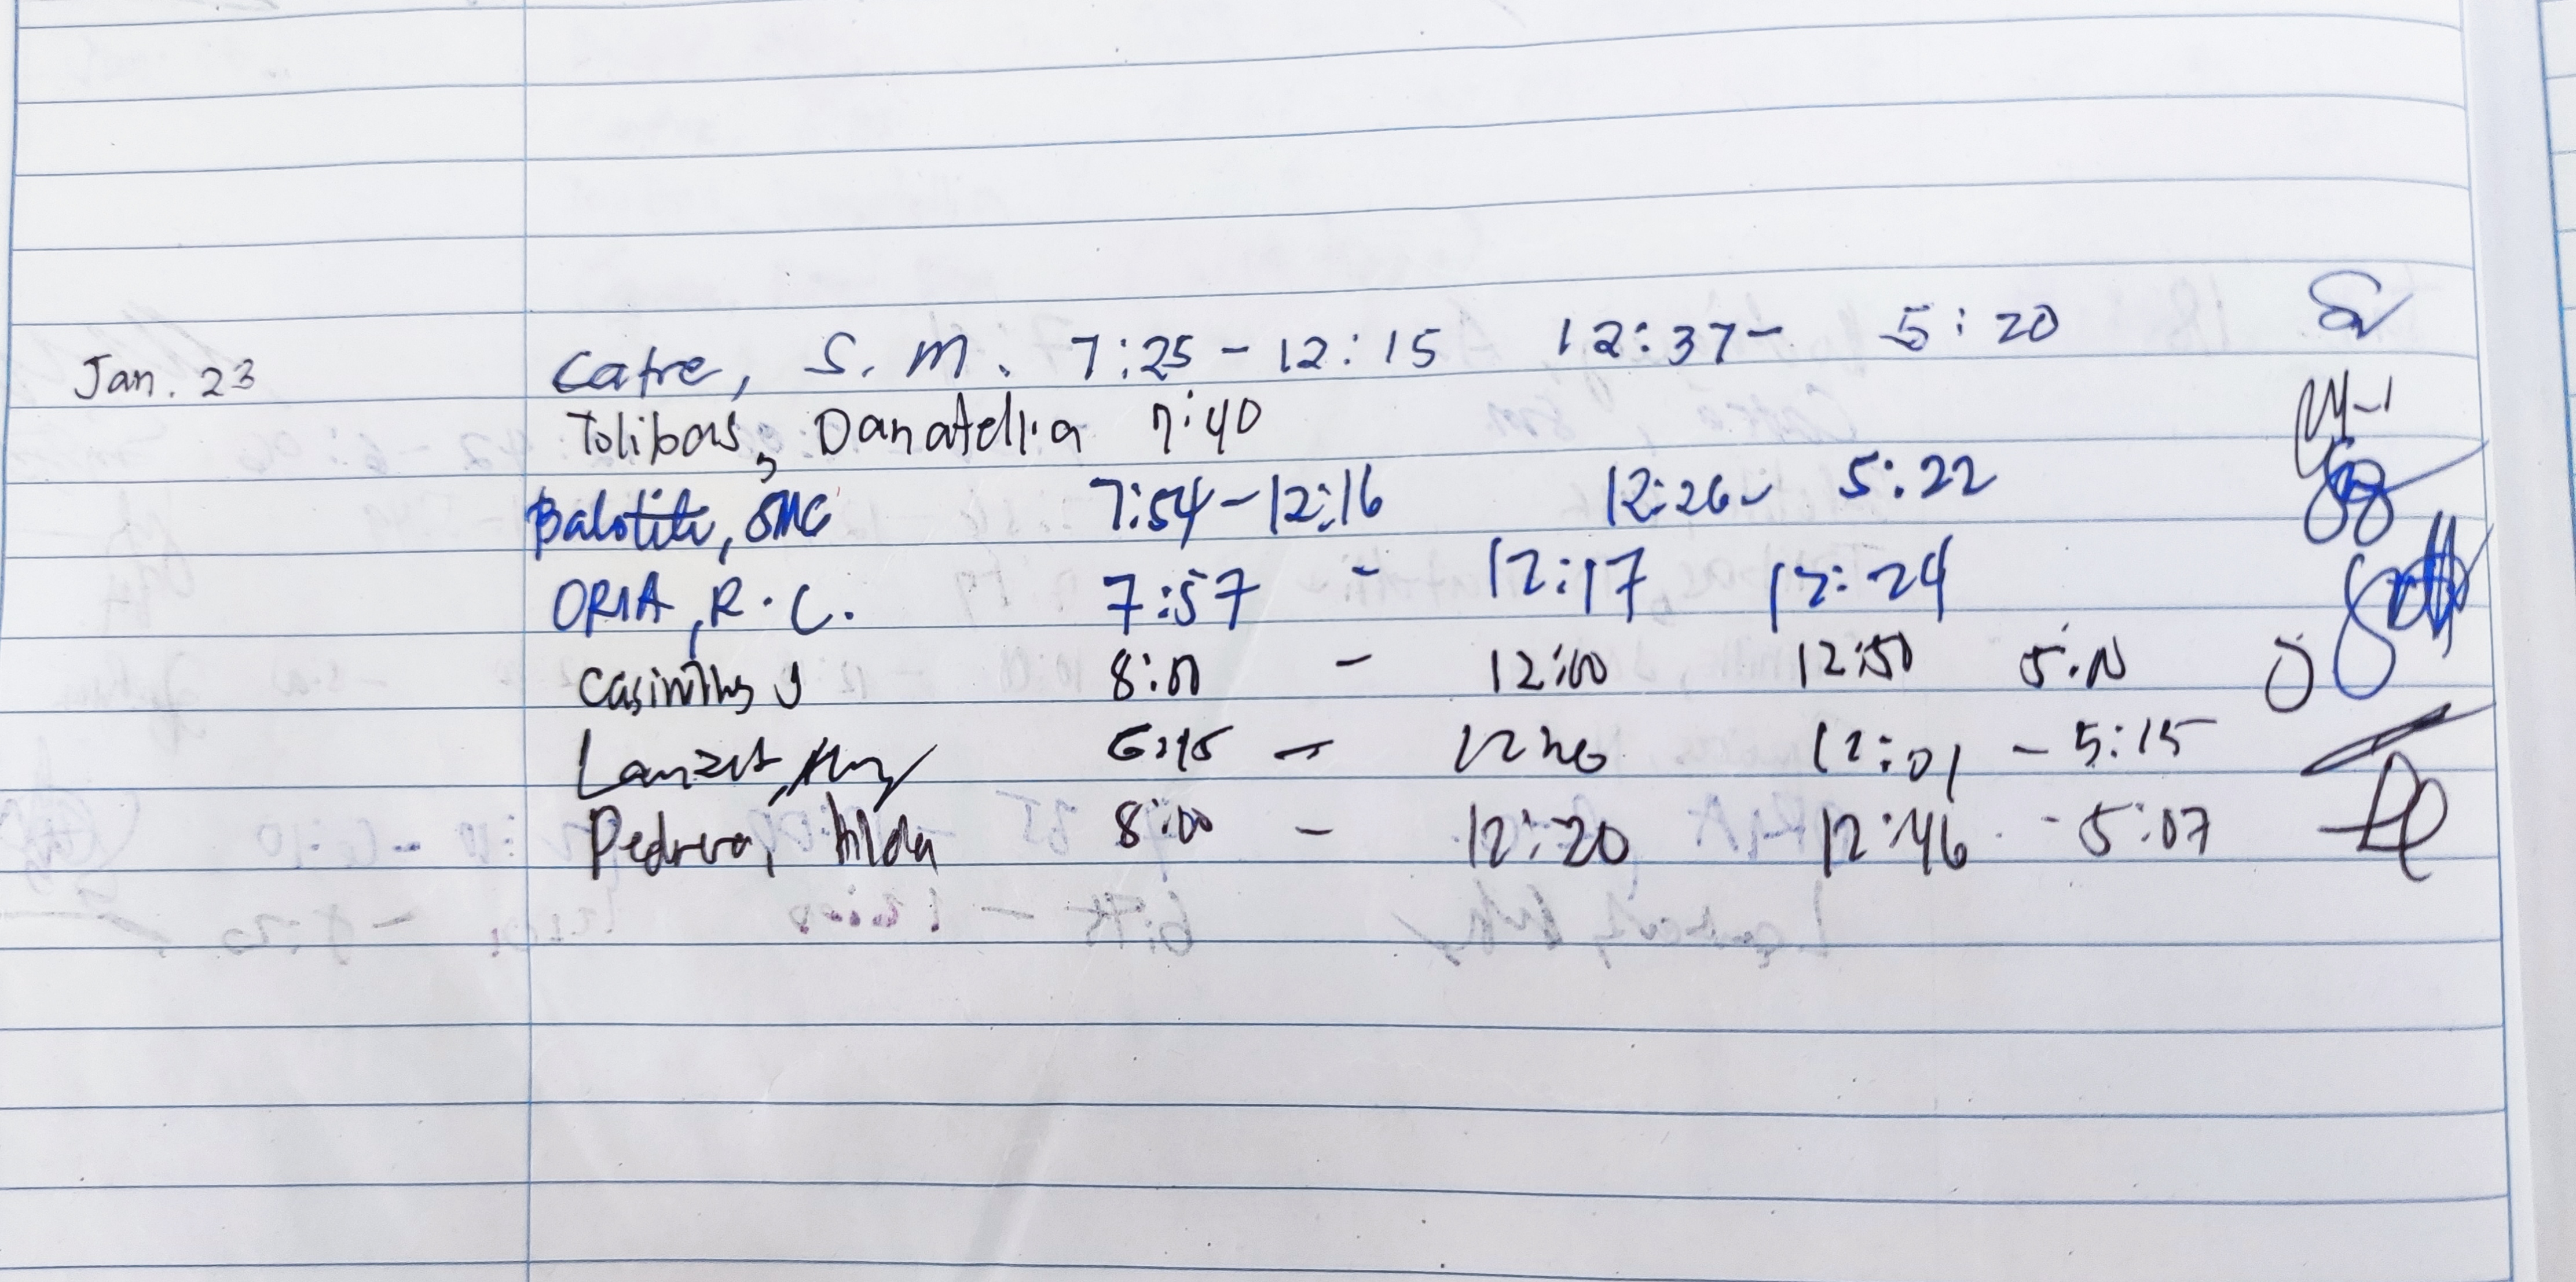 Jan. 23 Catre, S. M. 7:25 - 12:15 12:37 - 5:20
Tolibas, Danatella 7:40
Balotite, SMC 7:54 - 12:16 12:26 - 5:22
ORIA, R. C. 7:57 - 12:17 12:24
J 8:00 - 12:00 12:50 5:00
6:45 - 12:01 - 5:15
Pedrera, hilda 8:00 - 12:20 12:46 - 5:07